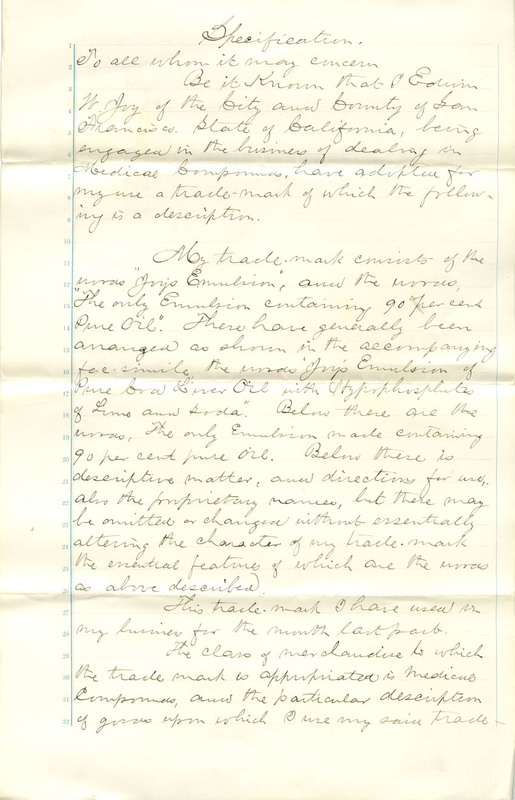 Specification.
1 To all whom it may concern
2 Be it Known that I Edwin
3 W. Joy of the City and County of San
4 Francisco. State of California, being
5 engaged in the business of dealing in
6 Medical Compounds, have adopted for
7 my use a trade-mark of which the follow-
8 ing is a description.
9
10
11 My trade-mark consists of the
12 words "Joys Emulsion", and the words,
13 "The only Emulsion containing 90 per cent
14 Pure Oil". These have generally been
15 arranged as shown in the accompanying
16 fac-simile, the words "Joys Emulsion of
17 Pure Cod Liver Oil with Hypophosphites
18 of Lime and Soda". Below these are the
19 words, The only Emulsion made containing
20 90 per cent pure Oil. Below these is
21 descriptive matter, and directions for use,
22 also the proprietary names, but these may
23 be omitted or changed without essentially
24 altering the character of my trade-mark
25 the essential features of which are the words
26 as above described.
27 This trade-mark I have used in
28 my business for the month last past.
29 The class of merchandise to which
30 the trade mark is appropriated is Medical
31 Compounds, and the particular description
32 of goods upon which I use my said trade-